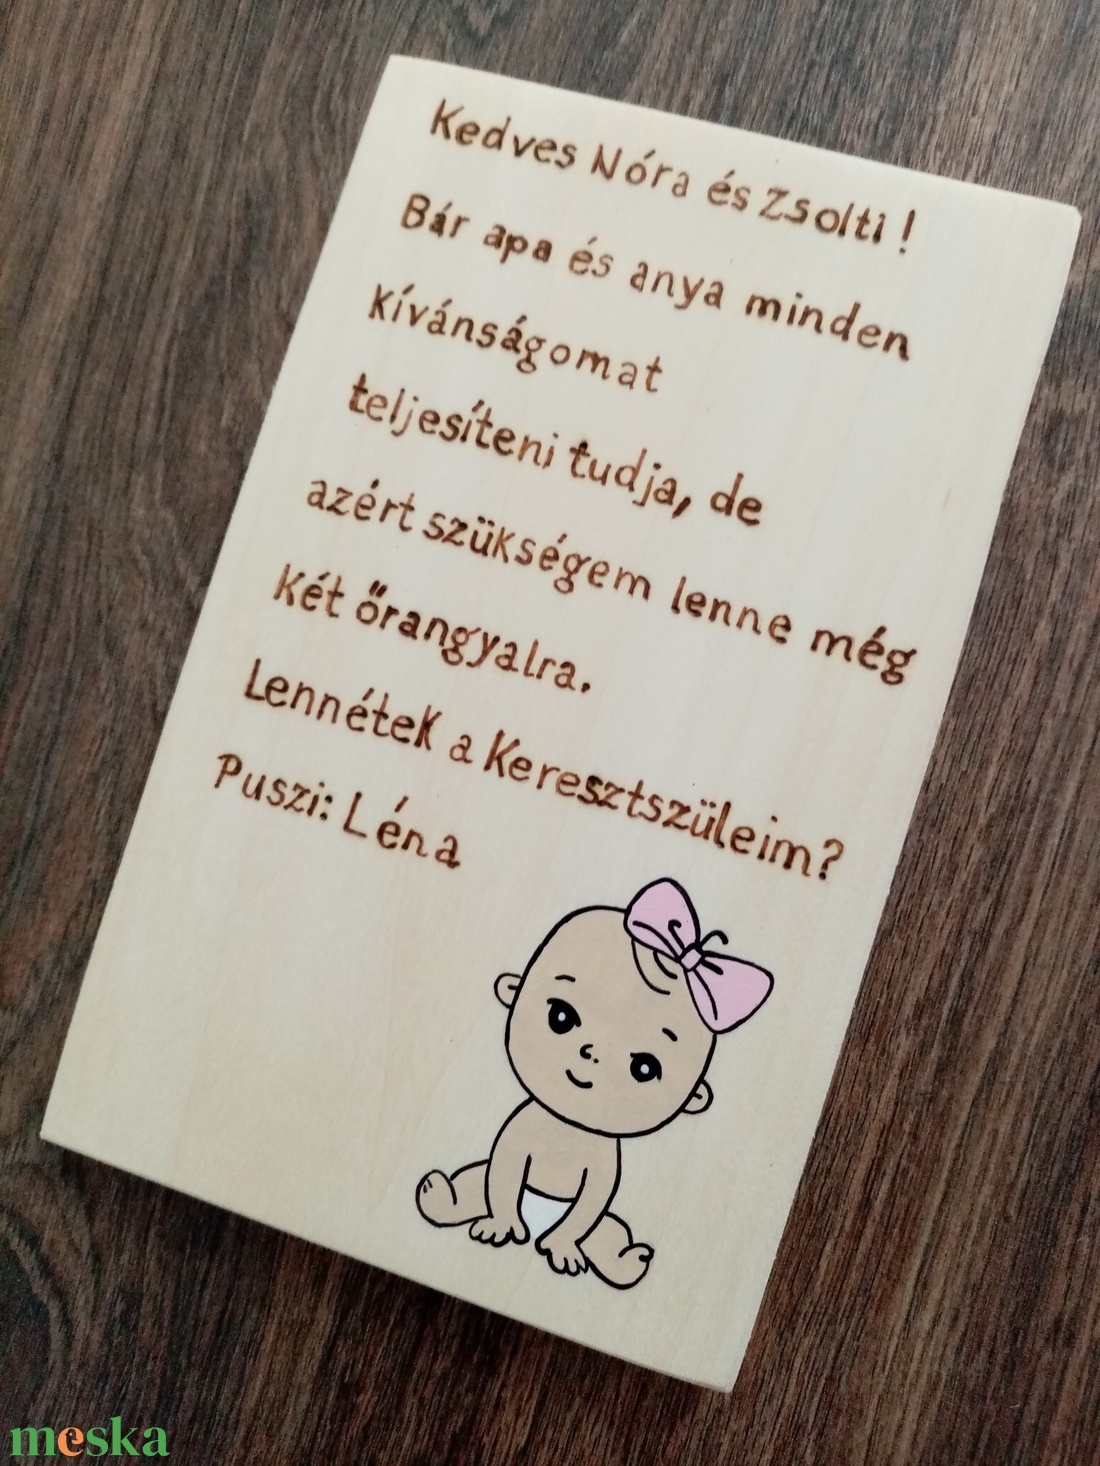 Kedves Nóra és Zsolti!
Bár apa és anya minden
kívánságomat
teljesíteni tudja, de
azért szükségem lenne még
két őrangyalra.
Lennétek a Keresztszüleim?
Puszi: Léna
meska